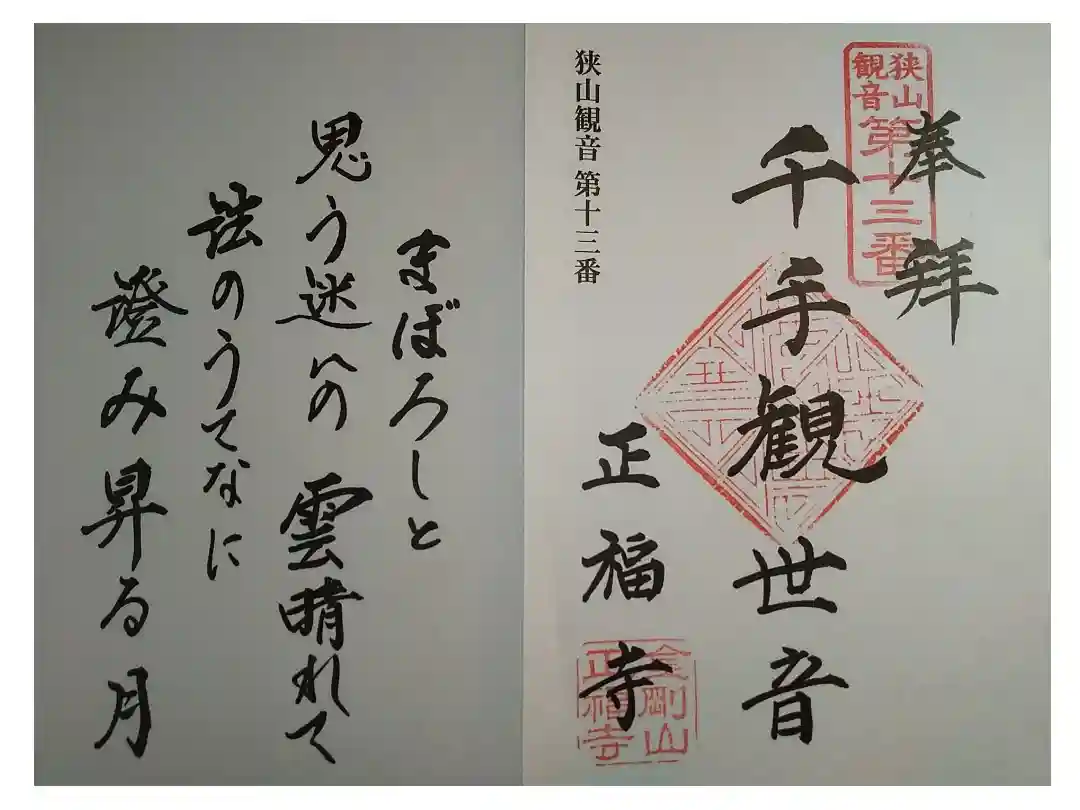 奉拝
狭山
観音
第十三番
千手観世音
正福寺
金剛山
正福寺
狭山観音 第十三番
まぼろしと
思う迷いの雲晴れて
法のうてなに
澄み昇る月